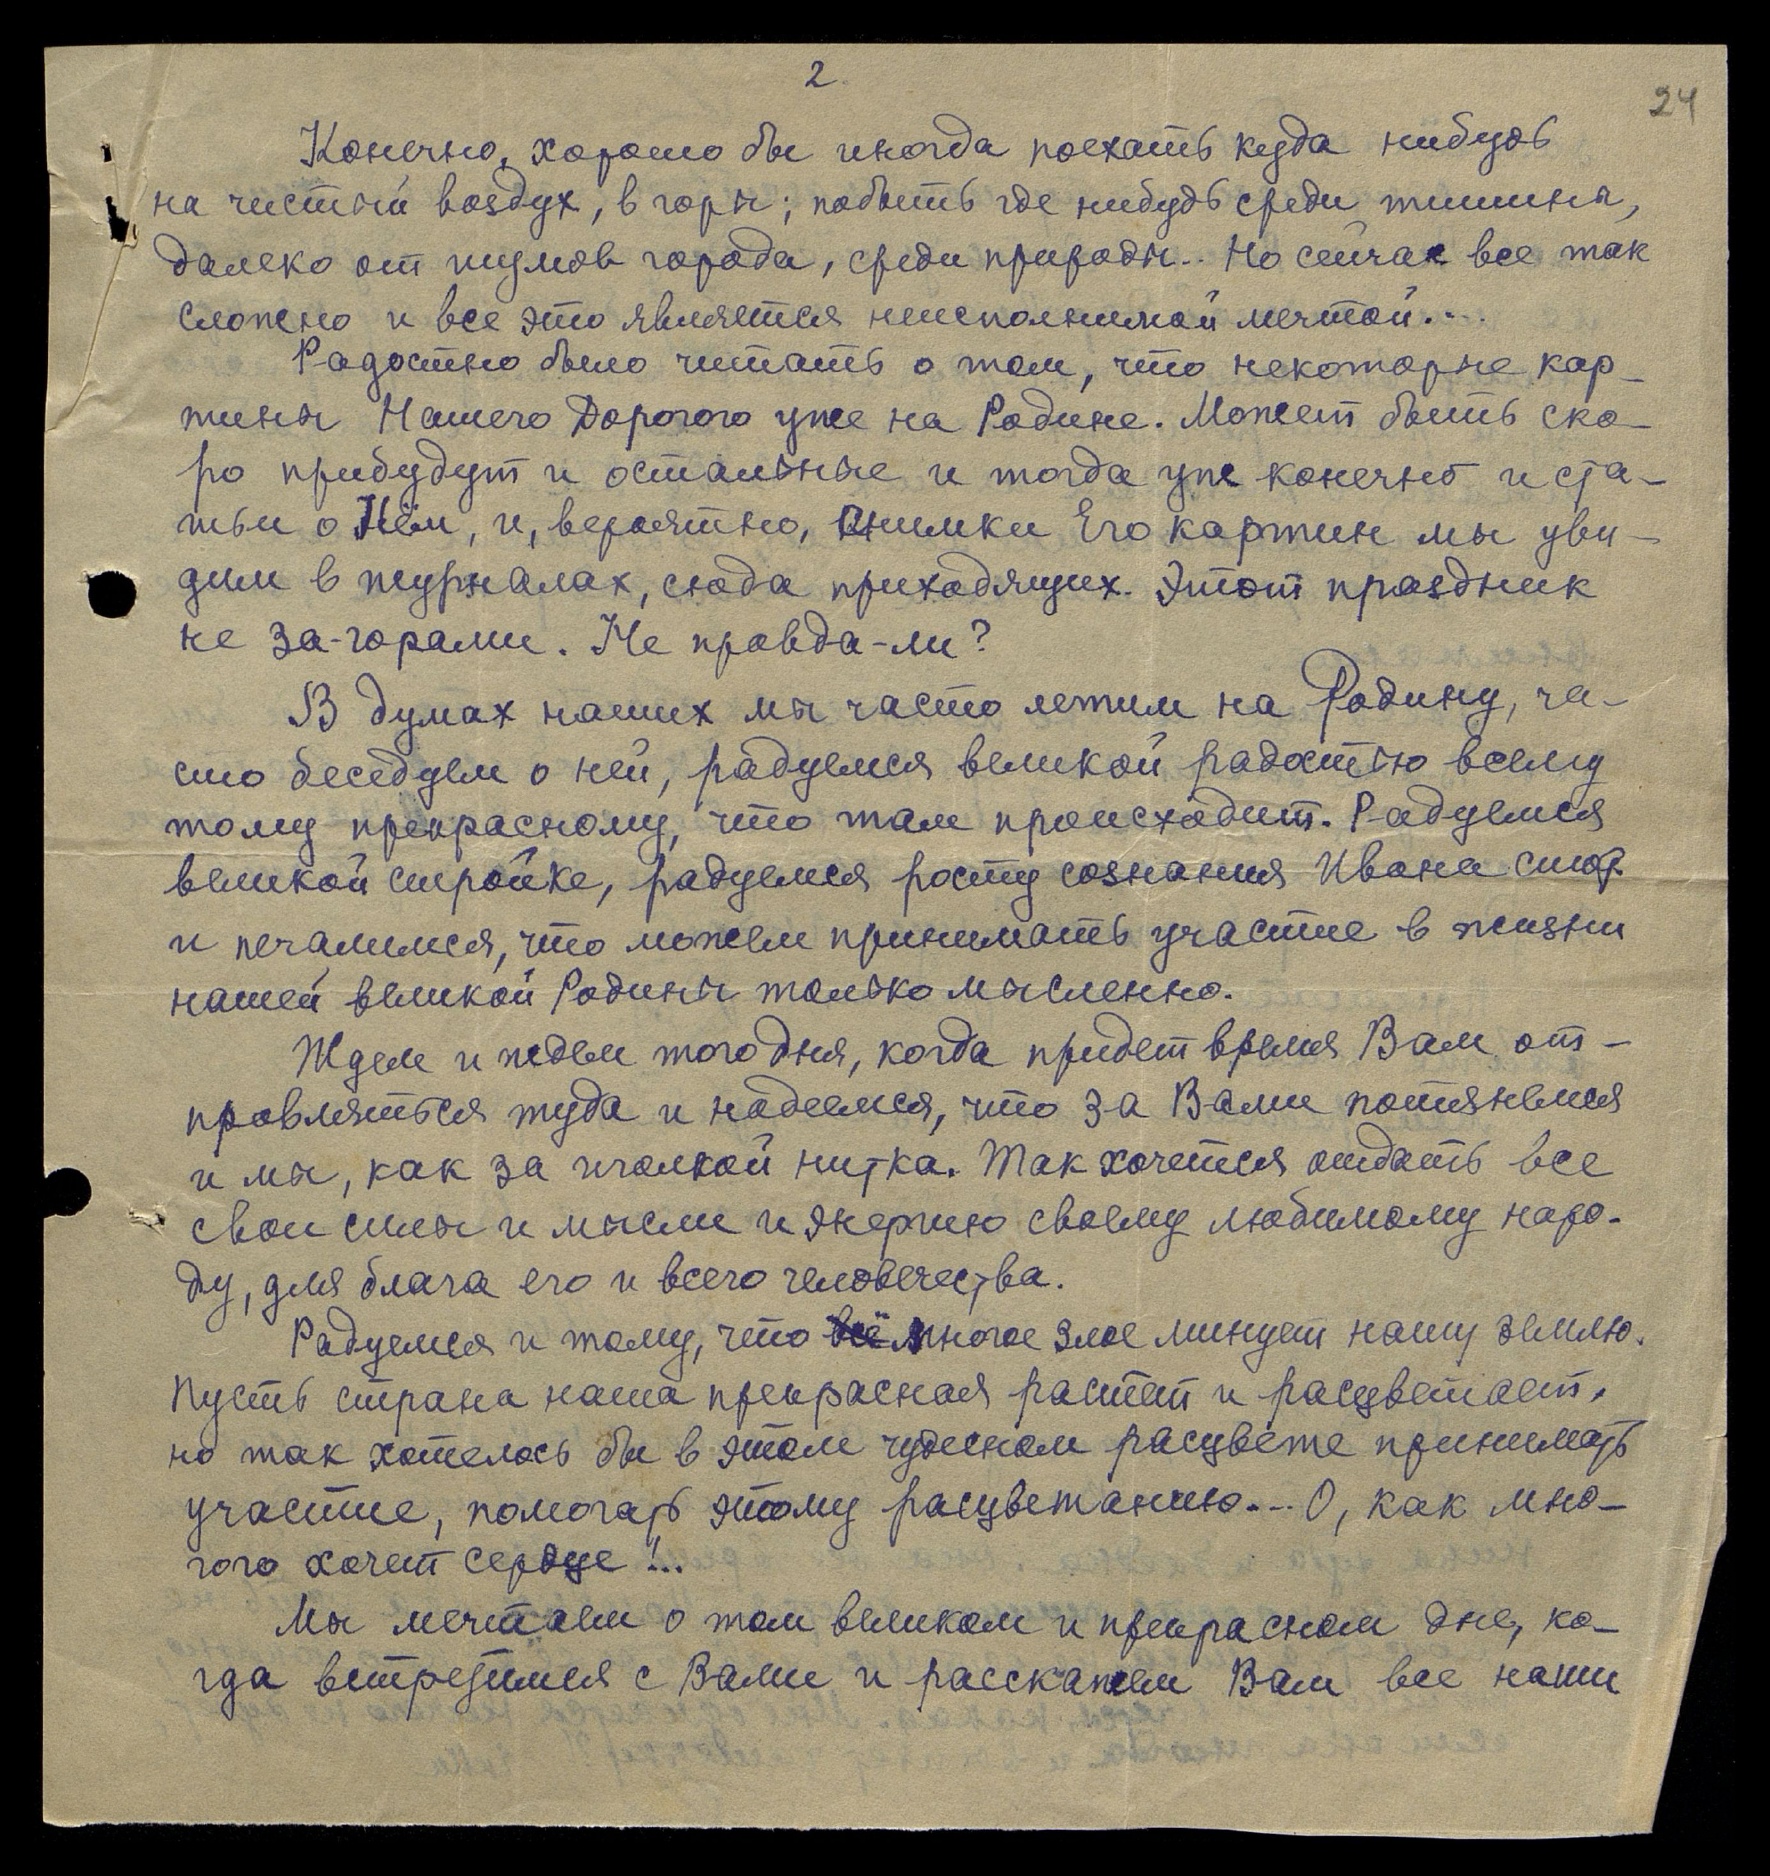 2
24
Конечно, хорошо бы иногда поехать куда нибудь
на чистый воздух, в горы; побыть где нибудь среди тишины,
далеко от шумов города, среди природы.. Но сейчас все так
сложно и все это является неисполнимой мечтой....
Радостно было читать о том, что некоторые кар-
тины Нашего Дорогого уже на Родине. Может быть ско-
ро прибудут и остальные и тогда уже конечно и ста-
тьи о Нём, и, вероятно, снимки Его картин мы уви-
дим в журналах, сюда приходящих. Этот праздник
не за-горами. Не правда-ли?
В думах наших мы часто летим на Родину, ча-
сто беседуем о ней, радуемся великой радостью всему
тому прекрасному, что там происходит. Радуемся
великой стройке, радуемся росту сознания Ивана Стор.
и печалимся, что можем принимать участие в жизни
нашей великой Родины только мысленно.
Ждем и ждем того дня, когда придет время Вам от-
правляться туда и надеемся, что за Вами потянемся
и мы, как за иголкой нитка. Так хочется отдать все
свои силы и мысли и энергию своему любимому наро-
ду, для блага его и всего человечества.
Радуемся и тому, что всё многое злое минует нашу землю.
Пусть страна наша прекрасная растет и расцветает,
но так хотелось бы в этом чудесном расцвете принимать
участие, помогать этому расцветанию... О, как мно-
гого хочет сердце!..
Мы мечтаем о том великом и прекрасном дне, ко-
гда встретимся с Вами и расскажем Вам все наши